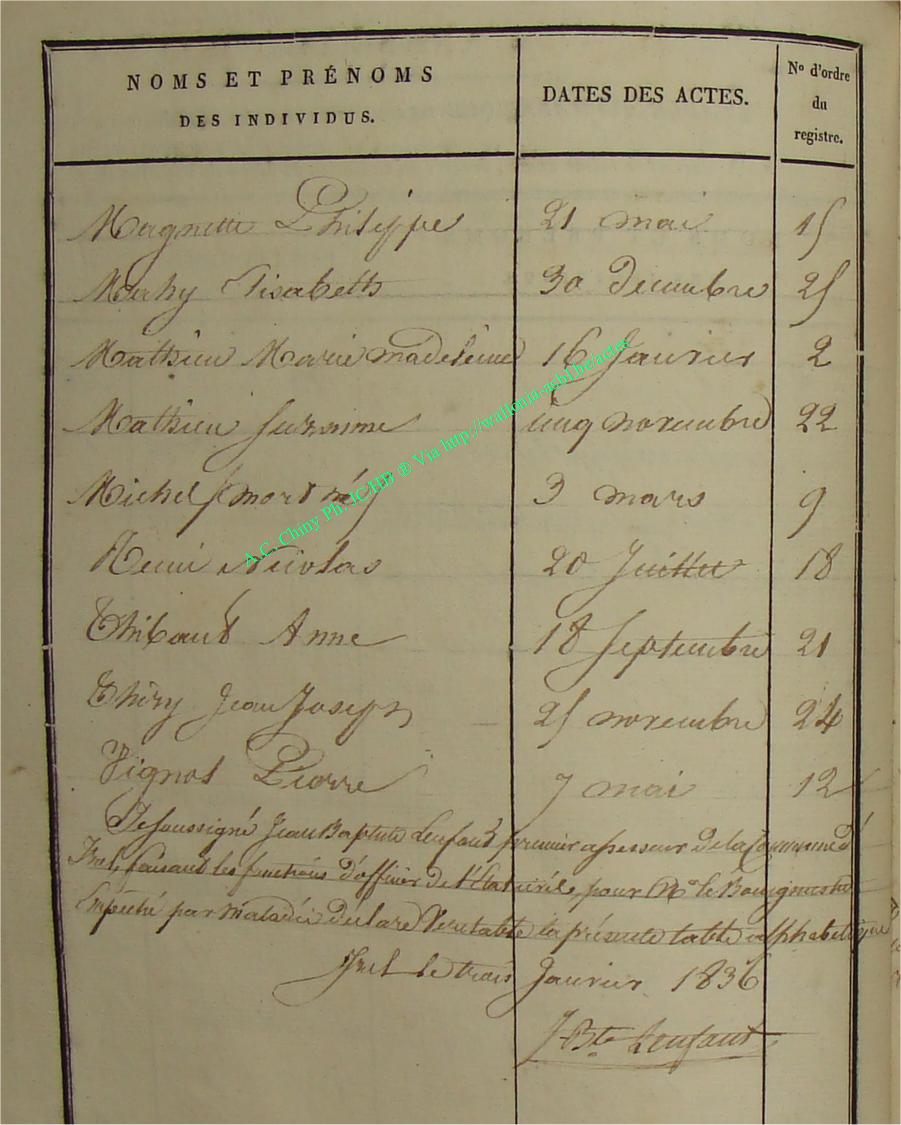 NOMS ET PRÉNOMS DES INDIVIDUS. DATES DES ACTES. Nº d'ordre du registre.
Magnette Philippe 21 mai 15
Marhy Elisabeth 30 Decembre 25
Mathieu Marie madeleine 16 Janvier 2
Mathieu Suzanne cinq novembre 22
Michel (mort né) 3 mars 9
Nicolas 20 Juillet 18
Thibaut Anne 18 Septembre 21
Thiry Jean Joseph 25 novembre 24
Vignol Pierre 7 mai 12
Je Soussigné Jean Baptiste Lenfant premier assesseur de la Commune d'
Izel, faisant les fonctions d'officier de l'Etat civil, pour Mr le Bourgmestre
Empeché par maladie declare Veritable la présente table alphabetique
Izel le trois Janvier 1836
J Bte Lenfant
A.C. Chiny Ph. ICHB ® Via http://wallonia-asbl.be/actes